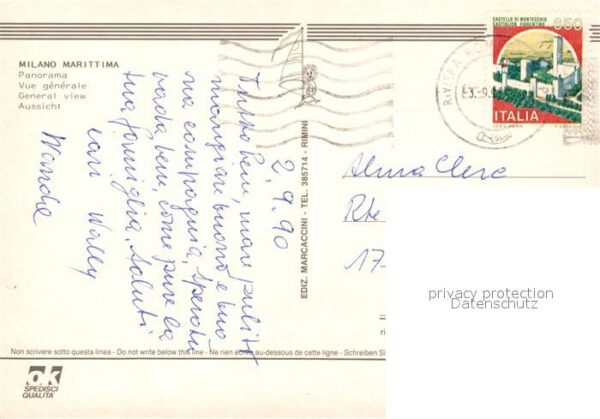 MILANO MARITTIMA
Panorama
Vue générale
General view
Aussicht
CASTELLO DI MONTECCHIO
CASTIGLION FIORENTINO
650
ITALIA
RIVIERA
EDIZ. MARCACCINI - TEL. 385714 - RIMINI
2.9.90
Tutto bene, mare pulito
mangiar buono e buo
na compagnia. Spero ti
vada bene, come pure la
tua famiglia. Saluti
cari Willy
Wanda
Alma Clerc
Rte
17
privacy protection
Datenschutz
Non scrivere sotto questa linea - Do not write below this line - Ne rien écrire au-dessous de cette ligne - Schreiben Si
ok
SPEDISCI
QUALITÀ